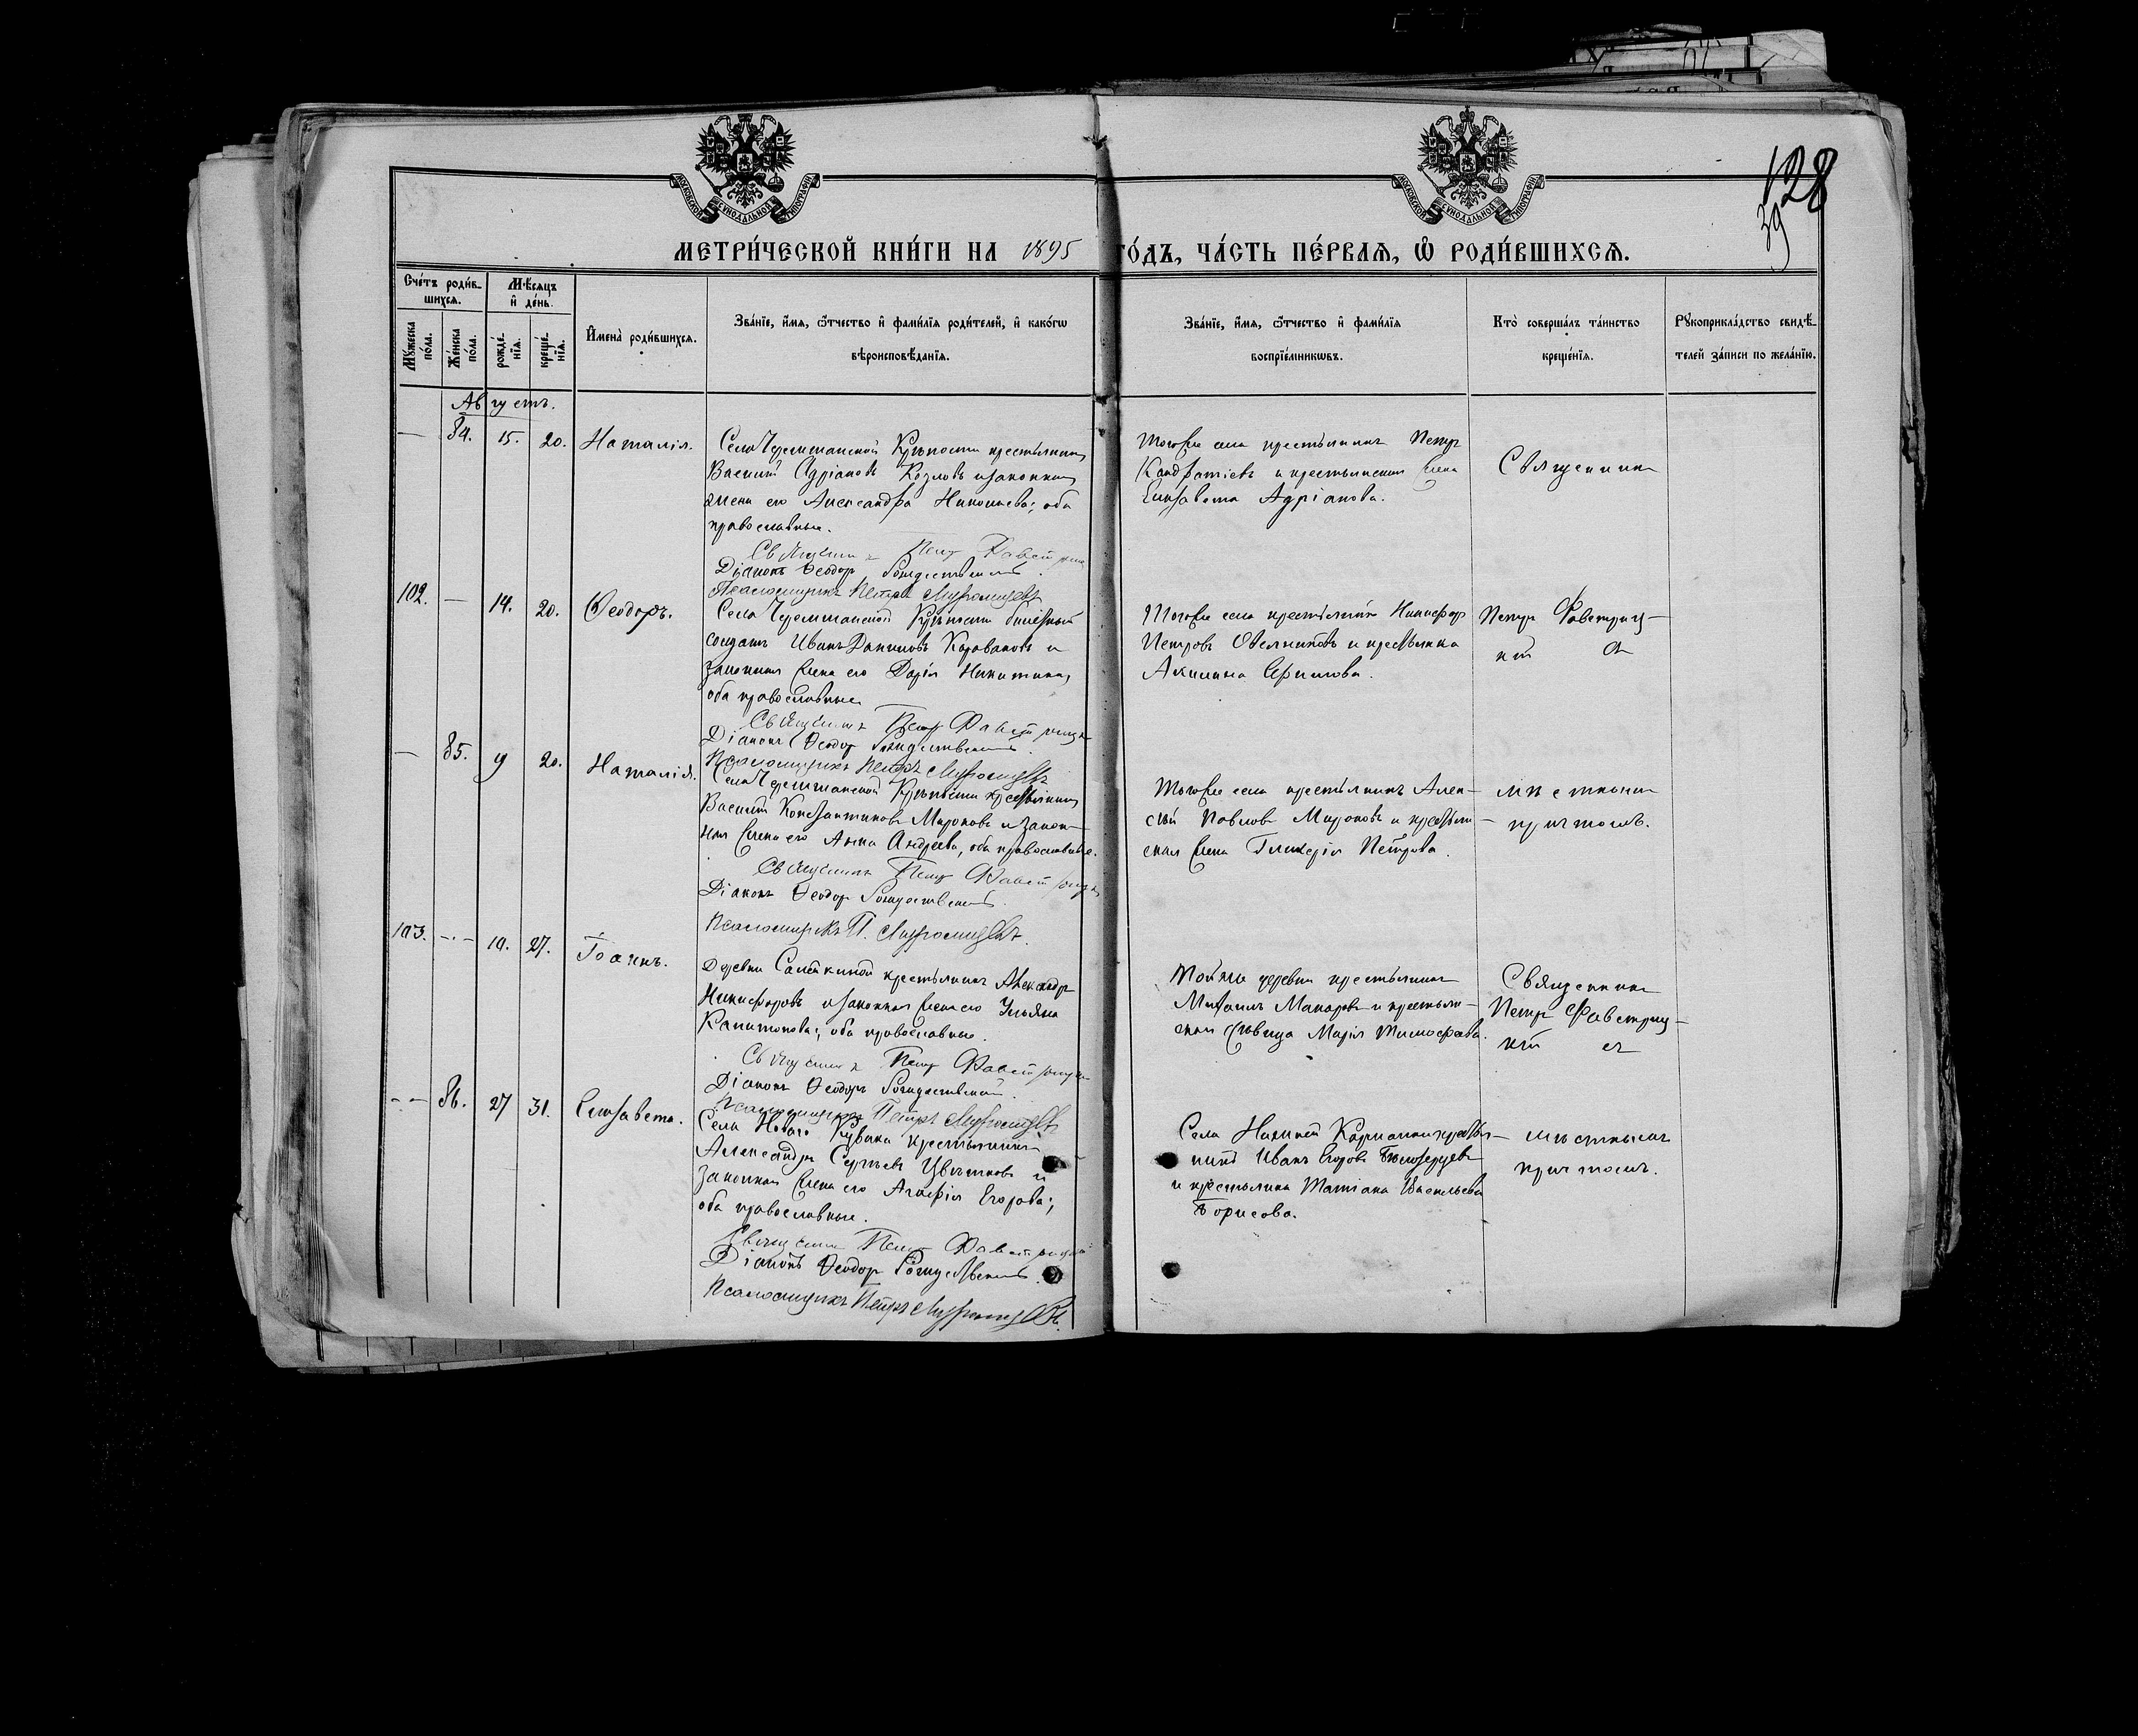 128
39
МОСКОВСКОЙ СѴНОДАЛЬНОЙ ТИПОГРАФІИ
МОСКОВСКОЙ СѴНОДАЛЬНОЙ ТИПОГРАФІИ
МЕТРИ́ЧЕСКОЙ КНИ́ГИ НА 1895 ГО́ДЪ, ЧА́СТЬ ПЕ́РВАѦ, Ѡ҆ РОДИ́ВШИХСѦ.
Сче́тъ роди́в-
шихсѧ.
Мѣ́сѧцъ
и҆ де́нь.
Мꙋ́жеска
по́ла.
Же́нска
по́ла.
рожде́-
нїѧ.
креще́-
нїѧ.
И҆мена̀ роди́вшихсѧ.
Зва́нїе, и҆́мѧ, ѻ҆́тчество и҆ фами́лїѧ роди́телей, и҆ како́гѡ
вѣроисповѣ́данїѧ.
Зва́нїе, и҆́мѧ, ѻ҆́тчество и҆ фами́лїѧ
воспрїе́мникѡвъ.
Кто̀ соверша́лъ та́инство
креще́нїѧ.
Рꙋкоприкла́дство свидѣ́-
телей за́писи по жела́нїю.
Августъ.
— 84. 15. 20. Наталія.
Села Черемшанской Крѣпости крестьянинъ
Василій Адріановъ Козловъ и законная
жена его Александра Николаева; оба
православные.
Священникъ Петръ
Діаконъ Ѳеодоръ Рождественскій.
Псаломщикъ Петръ
Тогоже села крестьянинъ Петръ
Кондратіевъ и крестьянская жена
Елизавета Адріанова.
Священникъ
102. — 14. 20. Ѳеодоръ.
Села Черемшанской Крѣпости билетный
солдатъ Иванъ Даниловъ Караваевъ и
законная жена его Дарія Никитина,
оба православные
Священникъ Петръ
Діаконъ Ѳеодоръ Рождественскій.
Псаломщикъ Петръ
Тогоже села крестьянинъ Никифоръ
Петровъ Овсянниковъ и крестьянка
Акилина
Петръ Фавстриц-
кій съ
— 85. 9 20. Наталія.
Села Черемшанской Крѣпости крестьянинъ
Василій Константиновъ Мироновъ и закон-
ная жена его Анна Андреева, оба православные.
Священникъ Петръ
Діаконъ Ѳеодоръ Рождественскій.
Псаломщикъ П.
Тогоже села крестьянинъ Алек-
сѣй Павловъ Мироновъ и крестьян-
ская жена Гликерія Петрова.
мѣстнымъ
причтомъ.
103. — 10. 27. Іоаннъ.
Деревни крестьянинъ Александръ
Никифоровъ и законная жена его Ульяна
Капитонова; оба православные.
Священникъ Петръ
Діаконъ Ѳеодоръ Рождественскій.
Псаломщикъ Петръ
Тойже деревни крестьянинъ
Михаилъ Макаровъ и крестьян-
ская дѣвица Марія Тимофеева.
Священникъ
Петръ Фавстриц-
кій съ
— 86. 27 31. Елизавета.
Села Новаго Кувака крестьянинъ
Александръ Сергѣевъ Цвѣтковъ и
законная жена его Агафія Егорова;
оба православные.
Священникъ Петръ
Діаконъ Ѳеодоръ Рождественскій.
Псаломщикъ Петръ
Села Нижней Кармалки крестья-
нинъ Иванъ Егоровъ Бѣлозерцевъ
и крестьянка Татіана Васильева
Борисова.
мѣстнымъ
причтомъ.